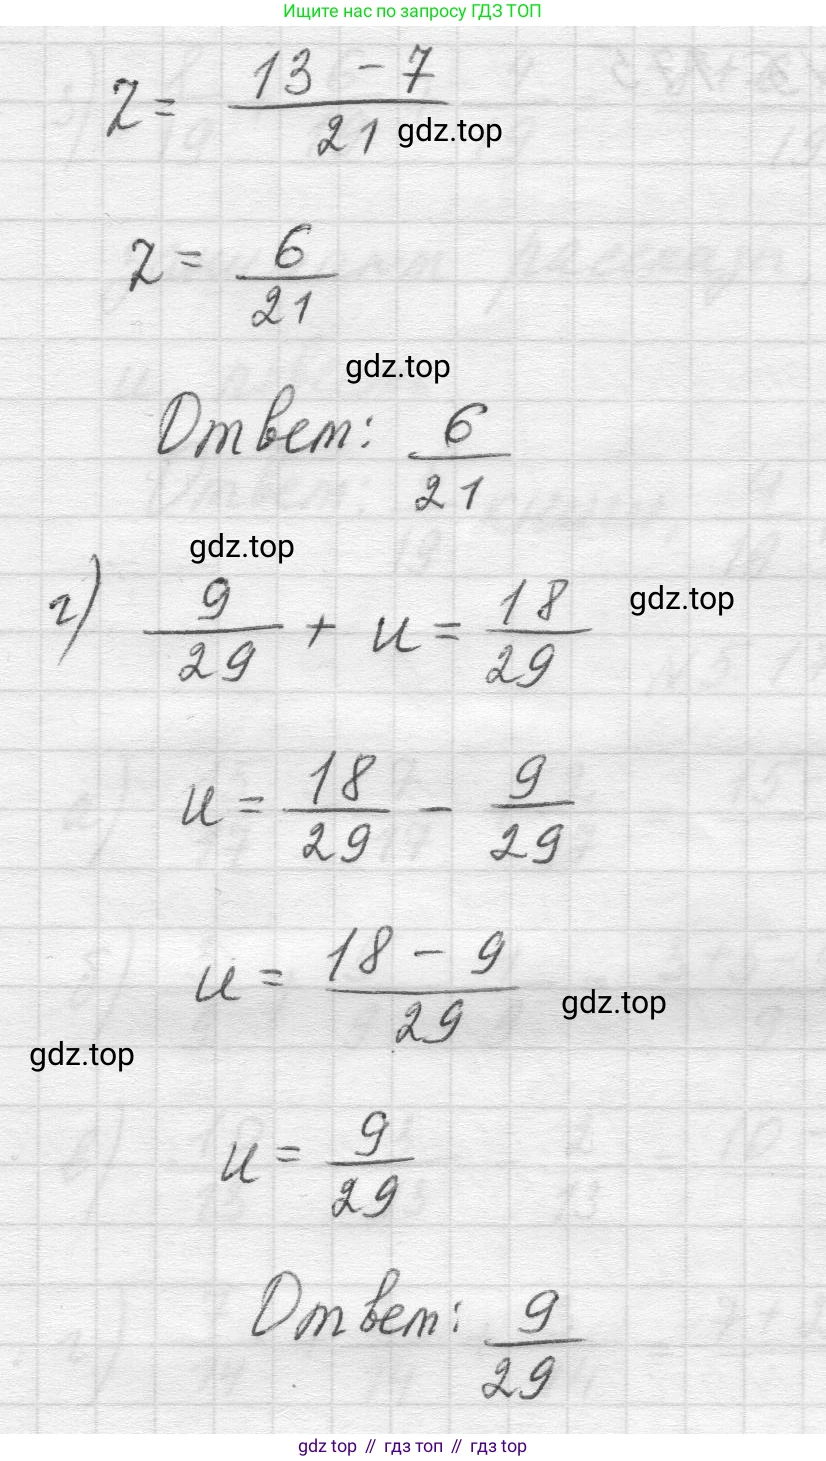 Ищите нас по запросу ГДЗ ТОП
z = (13 - 7)/21
gdz.top
z = 6/21
gdz.top
Ответ: 6/21
gdz.top
г) 9/29 + u = 18/29
gdz.top
u = 18/29 - 9/29
u = (18 - 9)/29
gdz.top
gdz.top
u = 9/29
Ответ: 9/29
gdz top // гдз топ // гдз top